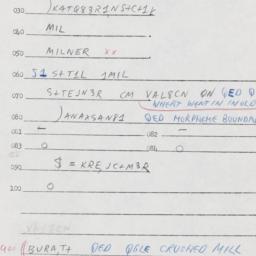 030 )KATQ83R1NS+C+1K
040 MIL
050 MILNER xx
060 S1 S+T1L 1MIL
070 S+TEJN3R CM VAL8CN ON QED Q
WHERE WENT IN
080 )ANAXSAN81 QED MORPHEME BOUNDA
081 — 082 —
083 O 084 O
090 $ = KRE,JC+M3R
100 O
BURA,T+ QED QGLE CRUSHED MILL